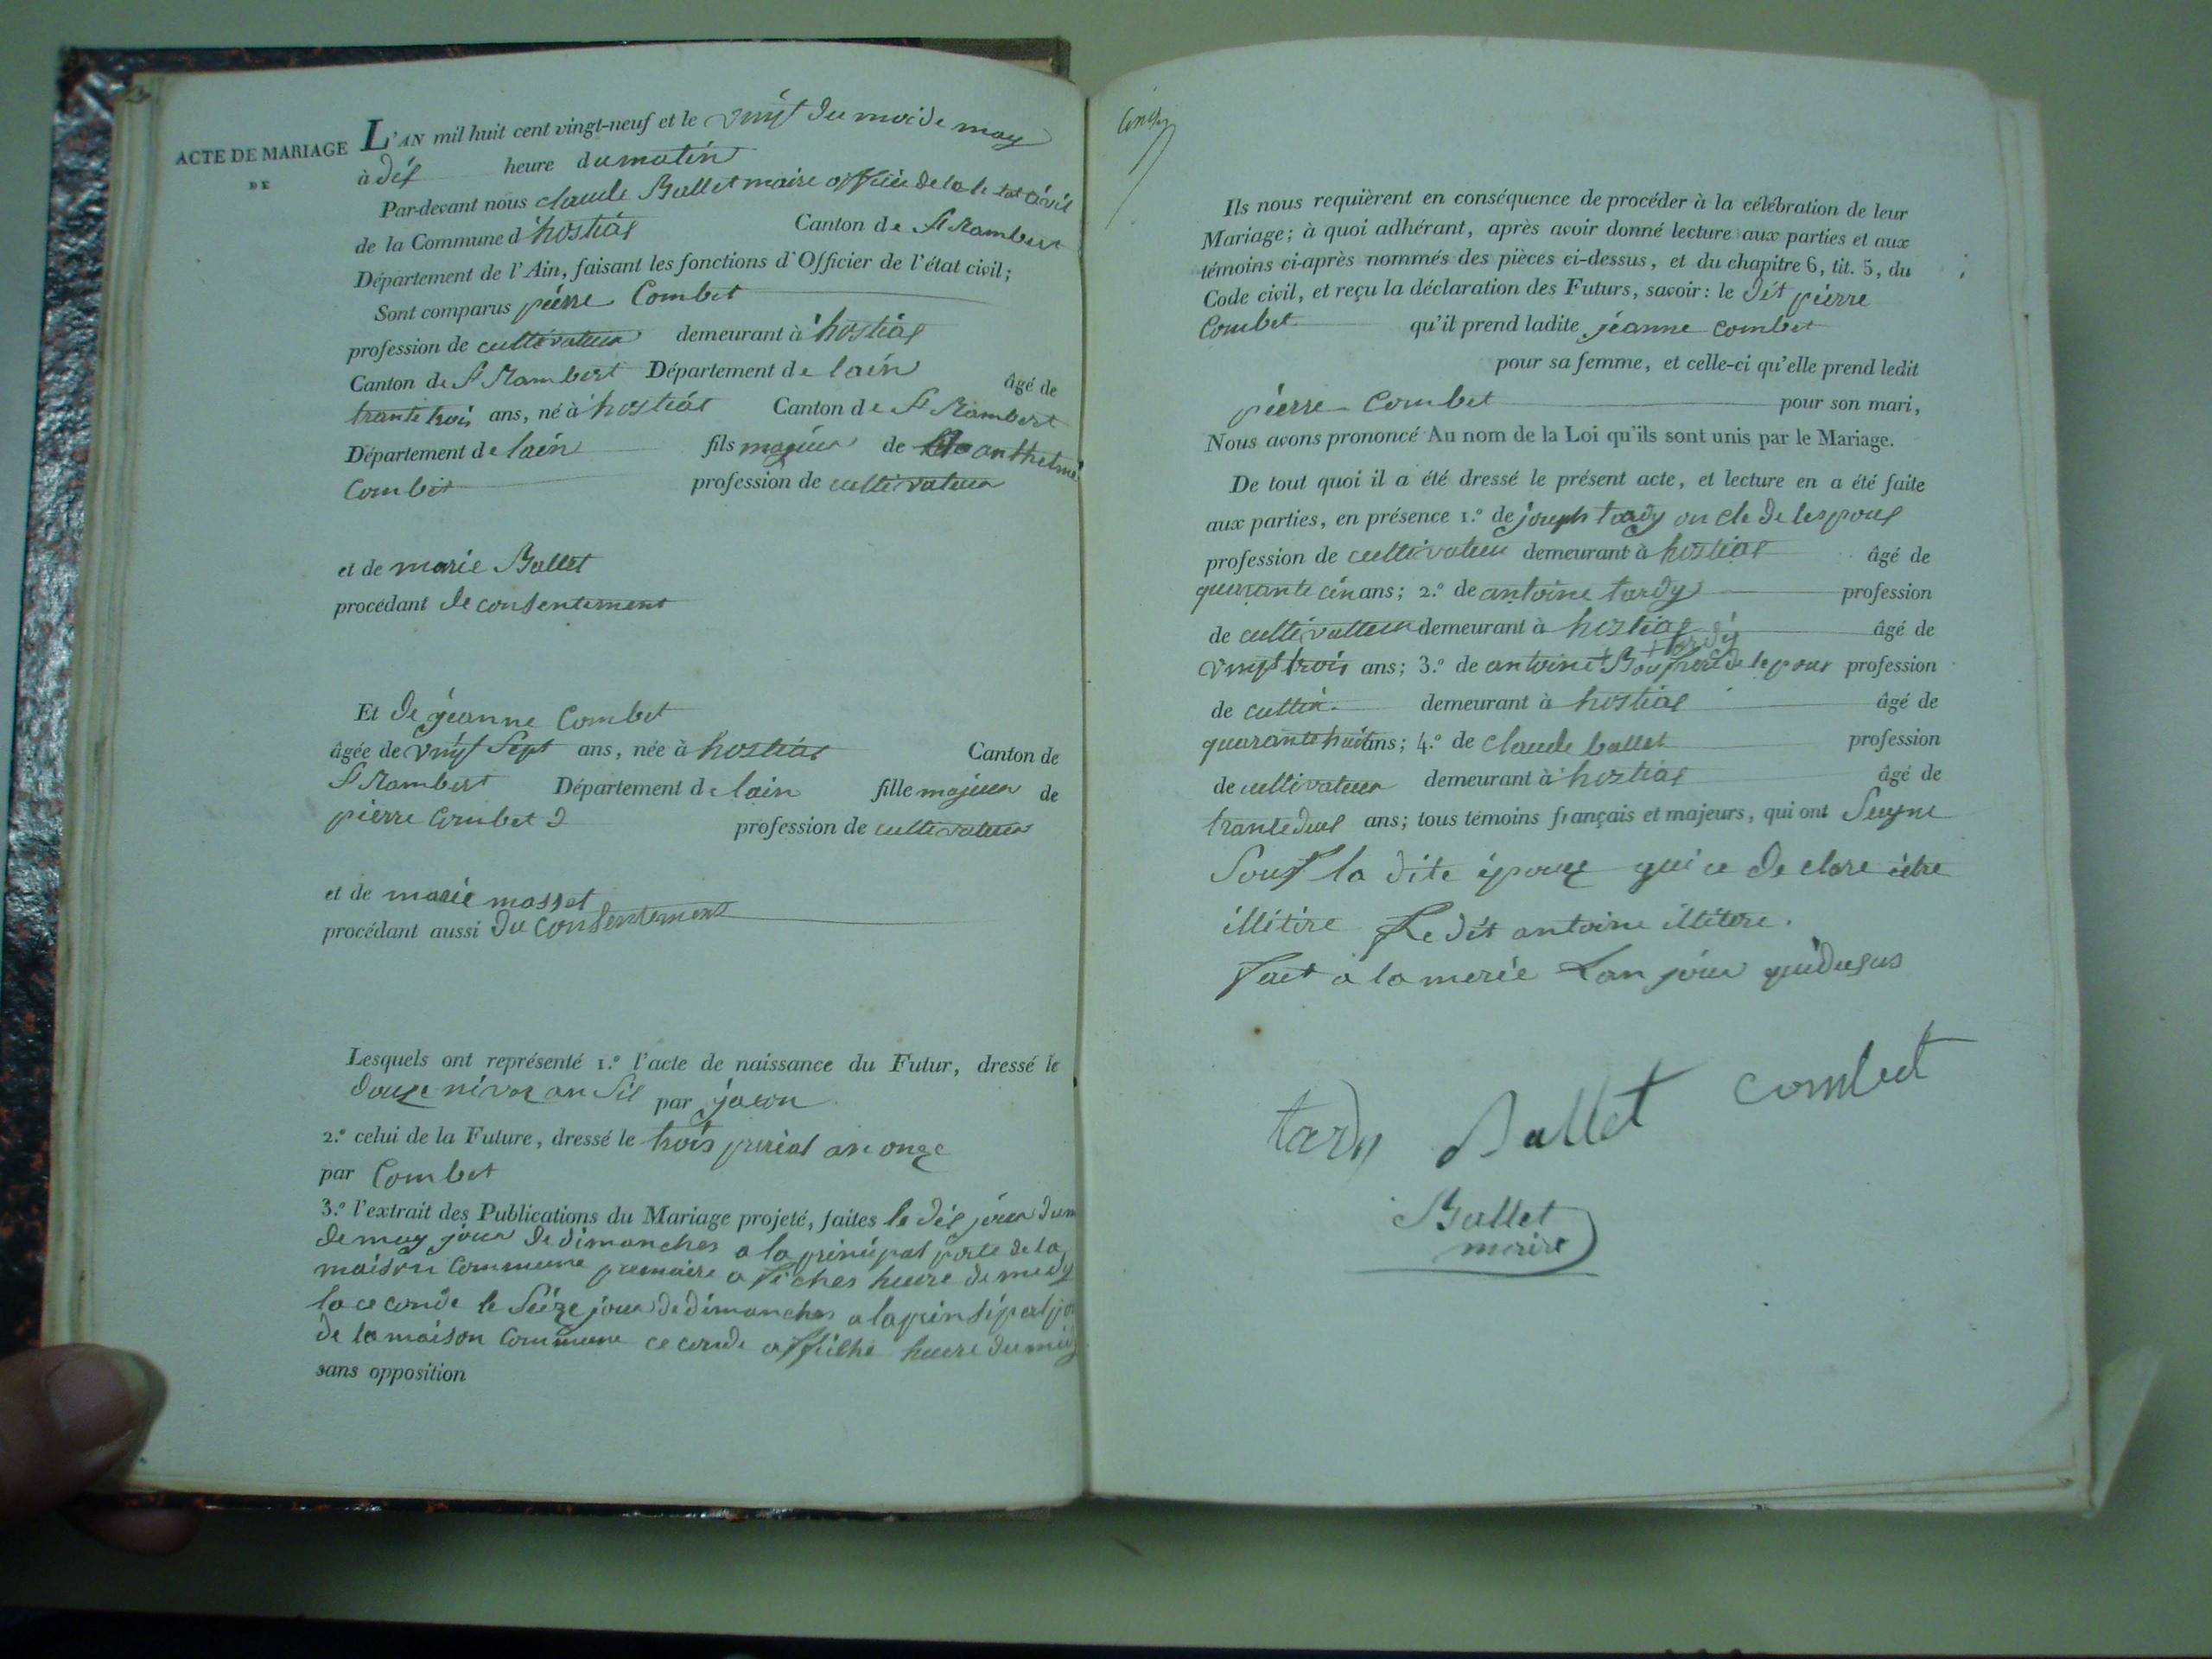 ACTE DE MARIAGE
DE
L'AN mil huit cent vingt-neuf et le vingt du moi de may
à dix heure du matin
Par-devant nous claude Ballet maire officié de la le tat civil
de la Commune d'hostias Canton de St Rambert
Département de l'Ain, faisant les fonctions d'Officier de l'état civil;
Sont comparus pierre Combet
profession de cultivateur demeurant à hostias
Canton de St Rambert Département de lain âgé de
trante trois ans, né à hostias Canton de St Rambert
Département de lain fils majeur de anthelme
Combet profession de cultivateur
et de marie Ballet
procédant de consentement
Et de jeanne Combet
âgée de vingt Sept ans, née à hostias Canton de
St Rambert Département de lain fille majeur de
pierre Combet profession de cultivateur
et de marie masset
procédant aussi du Consentement
Lesquels ont représenté 1.º l'acte de naissance du Futur, dressé le
douze nivoz an Six par
2.º celui de la Future, dressé le trois prerial an onze
par Combet
3.º l'extrait des Publications du Mariage projeté, faites le dix jour du m
de may jour de dimanches a la prinsipal porte de la
maison Commune premiere afiches heure de medy
la ceconde le Seize jour de dimanches a la prinsipal po
de la maison Commune ceconde affiche heure du midy
sans opposition
Ils nous requièrent en conséquence de procéder à la célébration de leur
Mariage; à quoi adhérant, après avoir donné lecture aux parties et aux
témoins ci-après nommés des pièces ci-dessus, et du chapitre 6, tit. 5, du
Code civil, et reçu la déclaration des Futurs, savoir: le dit pierre
Combet qu'il prend ladite jeanne combet
pour sa femme, et celle-ci qu'elle prend ledit
pierre Combet pour son mari,
Nous avons prononcé Au nom de la Loi qu'ils sont unis par le Mariage.
De tout quoi il a été dressé le présent acte, et lecture en a été faite
aux parties, en présence 1.º de joseph tardy on cle de les poux
profession de cultivateur demeurant à hostias âgé de
quarante cin ans; 2.º de antoine tardy profession
de cultivateur demeurant à hostias âgé de
tardy
vingt trois ans; 3.º de antoine de le poux profession
de cultiv. demeurant à hostias âgé de
quarante huit ans; 4.º de claude ballet profession
de cultivateur demeurant à hostias âgé de
trante deux ans; tous témoins français et majeurs, qui ont Seigne
Souf la dite épouze qui ce de clare être
illitire Le dit antoine illitere.
fait a la merie Lan jour quedesus
tardy Ballet combet
Ballet
merire